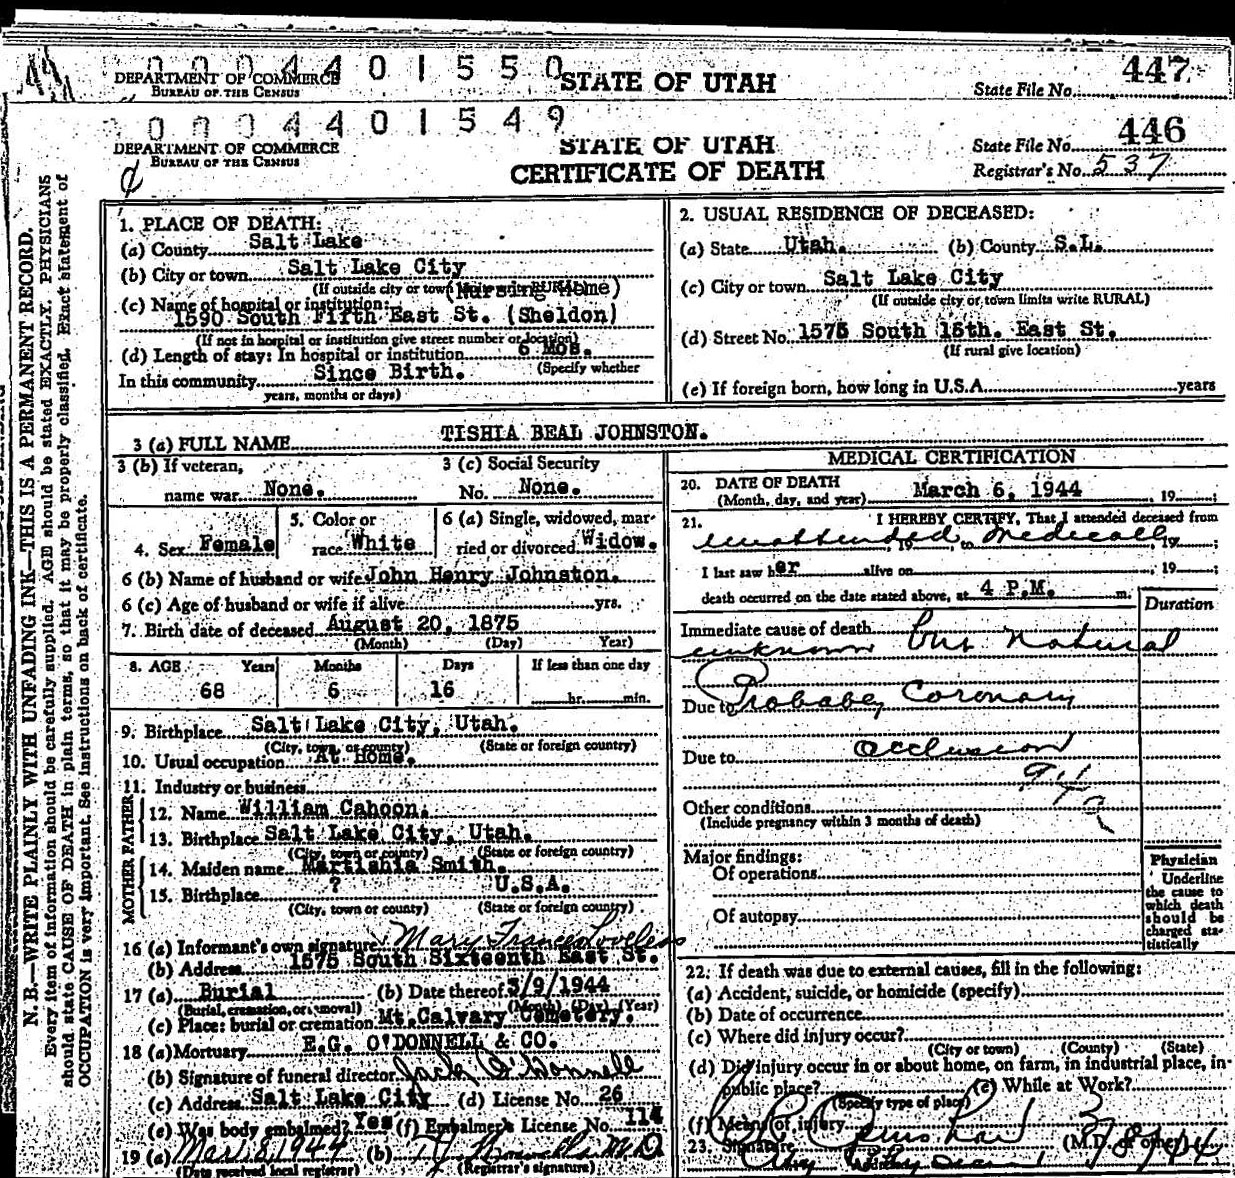 0004401550
DEPARTMENT OF COMMERCE
BUREAU OF THE CENSUS
STATE OF UTAH
State File No. 447
0004401549
DEPARTMENT OF COMMERCE
BUREAU OF THE CENSUS
STATE OF UTAH
CERTIFICATE OF DEATH
State File No. 446
Registrar's No. 537
N. B.—WRITE PLAINLY WITH UNFADING INK—THIS IS A PERMANENT RECORD.
Every item of information should be carefully supplied. AGE should be stated EXACTLY. PHYSICIANS
should state CAUSE OF DEATH in plain terms, so that it may be properly classified. Exact statement of
OCCUPATION is very important. See instructions on back of certificate.
1. PLACE OF DEATH:
(a) County Salt Lake
(b) City or town Salt Lake City
(If outside city or town RURAL)
(Nursing Home)
(c) Name of hospital or institution:
1590 South Fifth East St. (Sheldon)
(If not in hospital or institution give street number or location)
(d) Length of stay: In hospital or institution 6 Mos.
(Specify whether
In this community Since Birth.
years, months or days)
2. USUAL RESIDENCE OF DECEASED:
(a) State Utah. (b) County S.L.
(c) City or town Salt Lake City
(If outside city or town limits write RURAL)
(d) Street No. 1575 South 15th. East St.
(If rural give location)
(e) If foreign born, how long in U.S.A. years
3 (a) FULL NAME TISHIA BEAL JOHNSTON.
3 (b) If veteran,
name war None.
3 (c) Social Security
No. None.
4. Sex Female
5. Color or
race White
6 (a) Single, widowed, mar-
ried or divorced Widow.
6 (b) Name of husband or wife John Henry Johnston.
6 (c) Age of husband or wife if alive yrs.
7. Birth date of deceased August 20, 1875
(Month) (Day) Year)
8. AGE Years Months Days If less than one day
68 6 16 hr. min.
9. Birthplace Salt Lake City, Utah.
(City, town, or county) (State or foreign country)
10. Usual occupation At Home.
11. Industry or business
FATHER
12. Name William Cahoon.
13. Birthplace Salt Lake City, Utah.
(City, town or county) (State or foreign country)
MOTHER
14. Maiden name Martishia Smith.
15. Birthplace ? U.S.A.
(City, town or county) (State or foreign country)
16 (a) Informant's own signature Mary Frances Loveless
(b) Address 1575 South Sixteenth East St.
17 (a) Burial (b) Date thereof 3/9/1944
(Burial, cremation, or removal) (Month) (Day) (Year)
(c) Place: burial or cremation Mt. Calvary Cemetery.
18 (a) Mortuary E.G. O'DONNELL & CO.
(b) Signature of funeral director Jack O'Donnell
(c) Address Salt Lake City (d) License No. 26
(e) Was body embalmed? Yes (f) Embalmer's License No. 114
19 (a) Mar. 8 1944 (b) M.D.
(Date received local registrar) (Registrar's signature)
MEDICAL CERTIFICATION
20. DATE OF DEATH
(Month, day, and year) March 6, 1944, 19 ;
21. I HEREBY CERTIFY, That I attended deceased from
unattended, 19 , to medically, 19 ;
I last saw her alive on , 19 ;
death occurred on the date stated above, at 4 P.M. m.
Duration
Immediate cause of death but natural
unknown
Due to Probably Coronary
Due to occlusion
94
Other conditions
(Include pregnancy within 3 months of death)
Major findings:
Of operations
Of autopsy
Physician
Underline
the cause to
which death
should be
charged sta-
tistically
22. If death was due to external causes, fill in the following:
(a) Accident, suicide, or homicide (specify)
(b) Date of occurrence
(c) Where did injury occur?
(City or town) (County) (State)
(d) Did injury occur in or about home, on farm, in industrial place, in
public place? (e) While at Work?
(Specify type of place)
(f) Means of injury
23. Signature (M.D. or other) 3/8/44